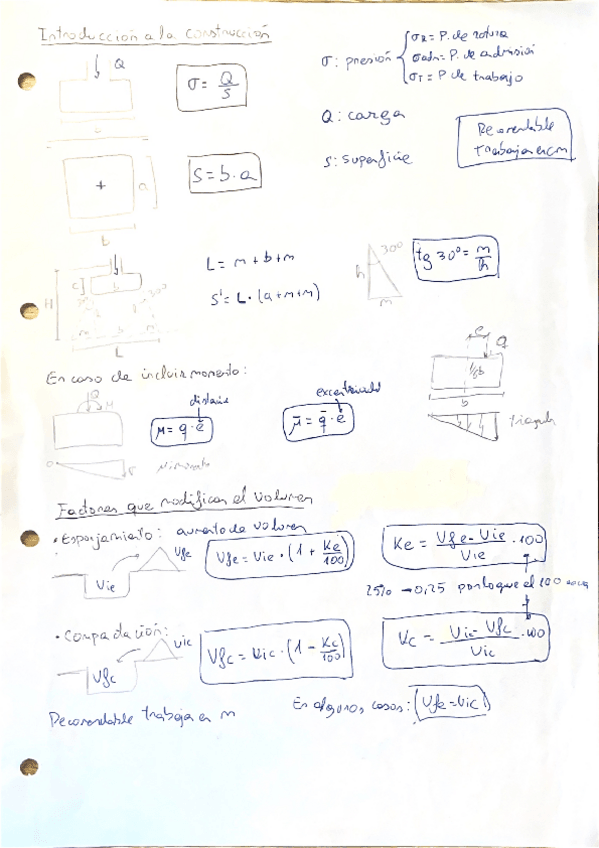 Introducción a la construcción
Q
σ = Q/S
σ: presión
σR = P. de rotura
σadm = P. de admisión
σT = P de trabajo
Q: carga
Recomendable
trabajar en cm
S: Superficie
a
S = b · a
a
b
L = m + b + m
S' = L · (a + m + m)
30º
tg 30º = m/h
h
m
H
c
b
30º
30º
m
b
m
L
e
Q
1/6b
b
En caso de incluir momento:
Q
M
distancia
M = q · e
excentricidad
M = q · e
Triangular
Factores que modifican el volumen
• Esponjamiento: aumento de volumen
Vfe
Vie
Vfe = Vie · (1 + Ke/100)
Ke = Vfe - Vie / Vie · 100
25% → 0,25 por lo que el 100
• Compactación:
Vic
Vfc
Vfc = Vic · (1 - Kc/100)
Kc = Vic - Vfc / Vic · 100
Recomendable trabajar en m
En algunos casos: (Vfe = Vic)